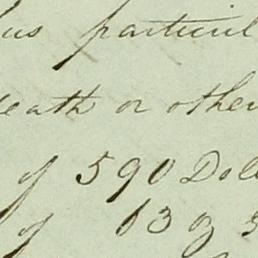 us particul
death or other
of 590 Doll
of 13